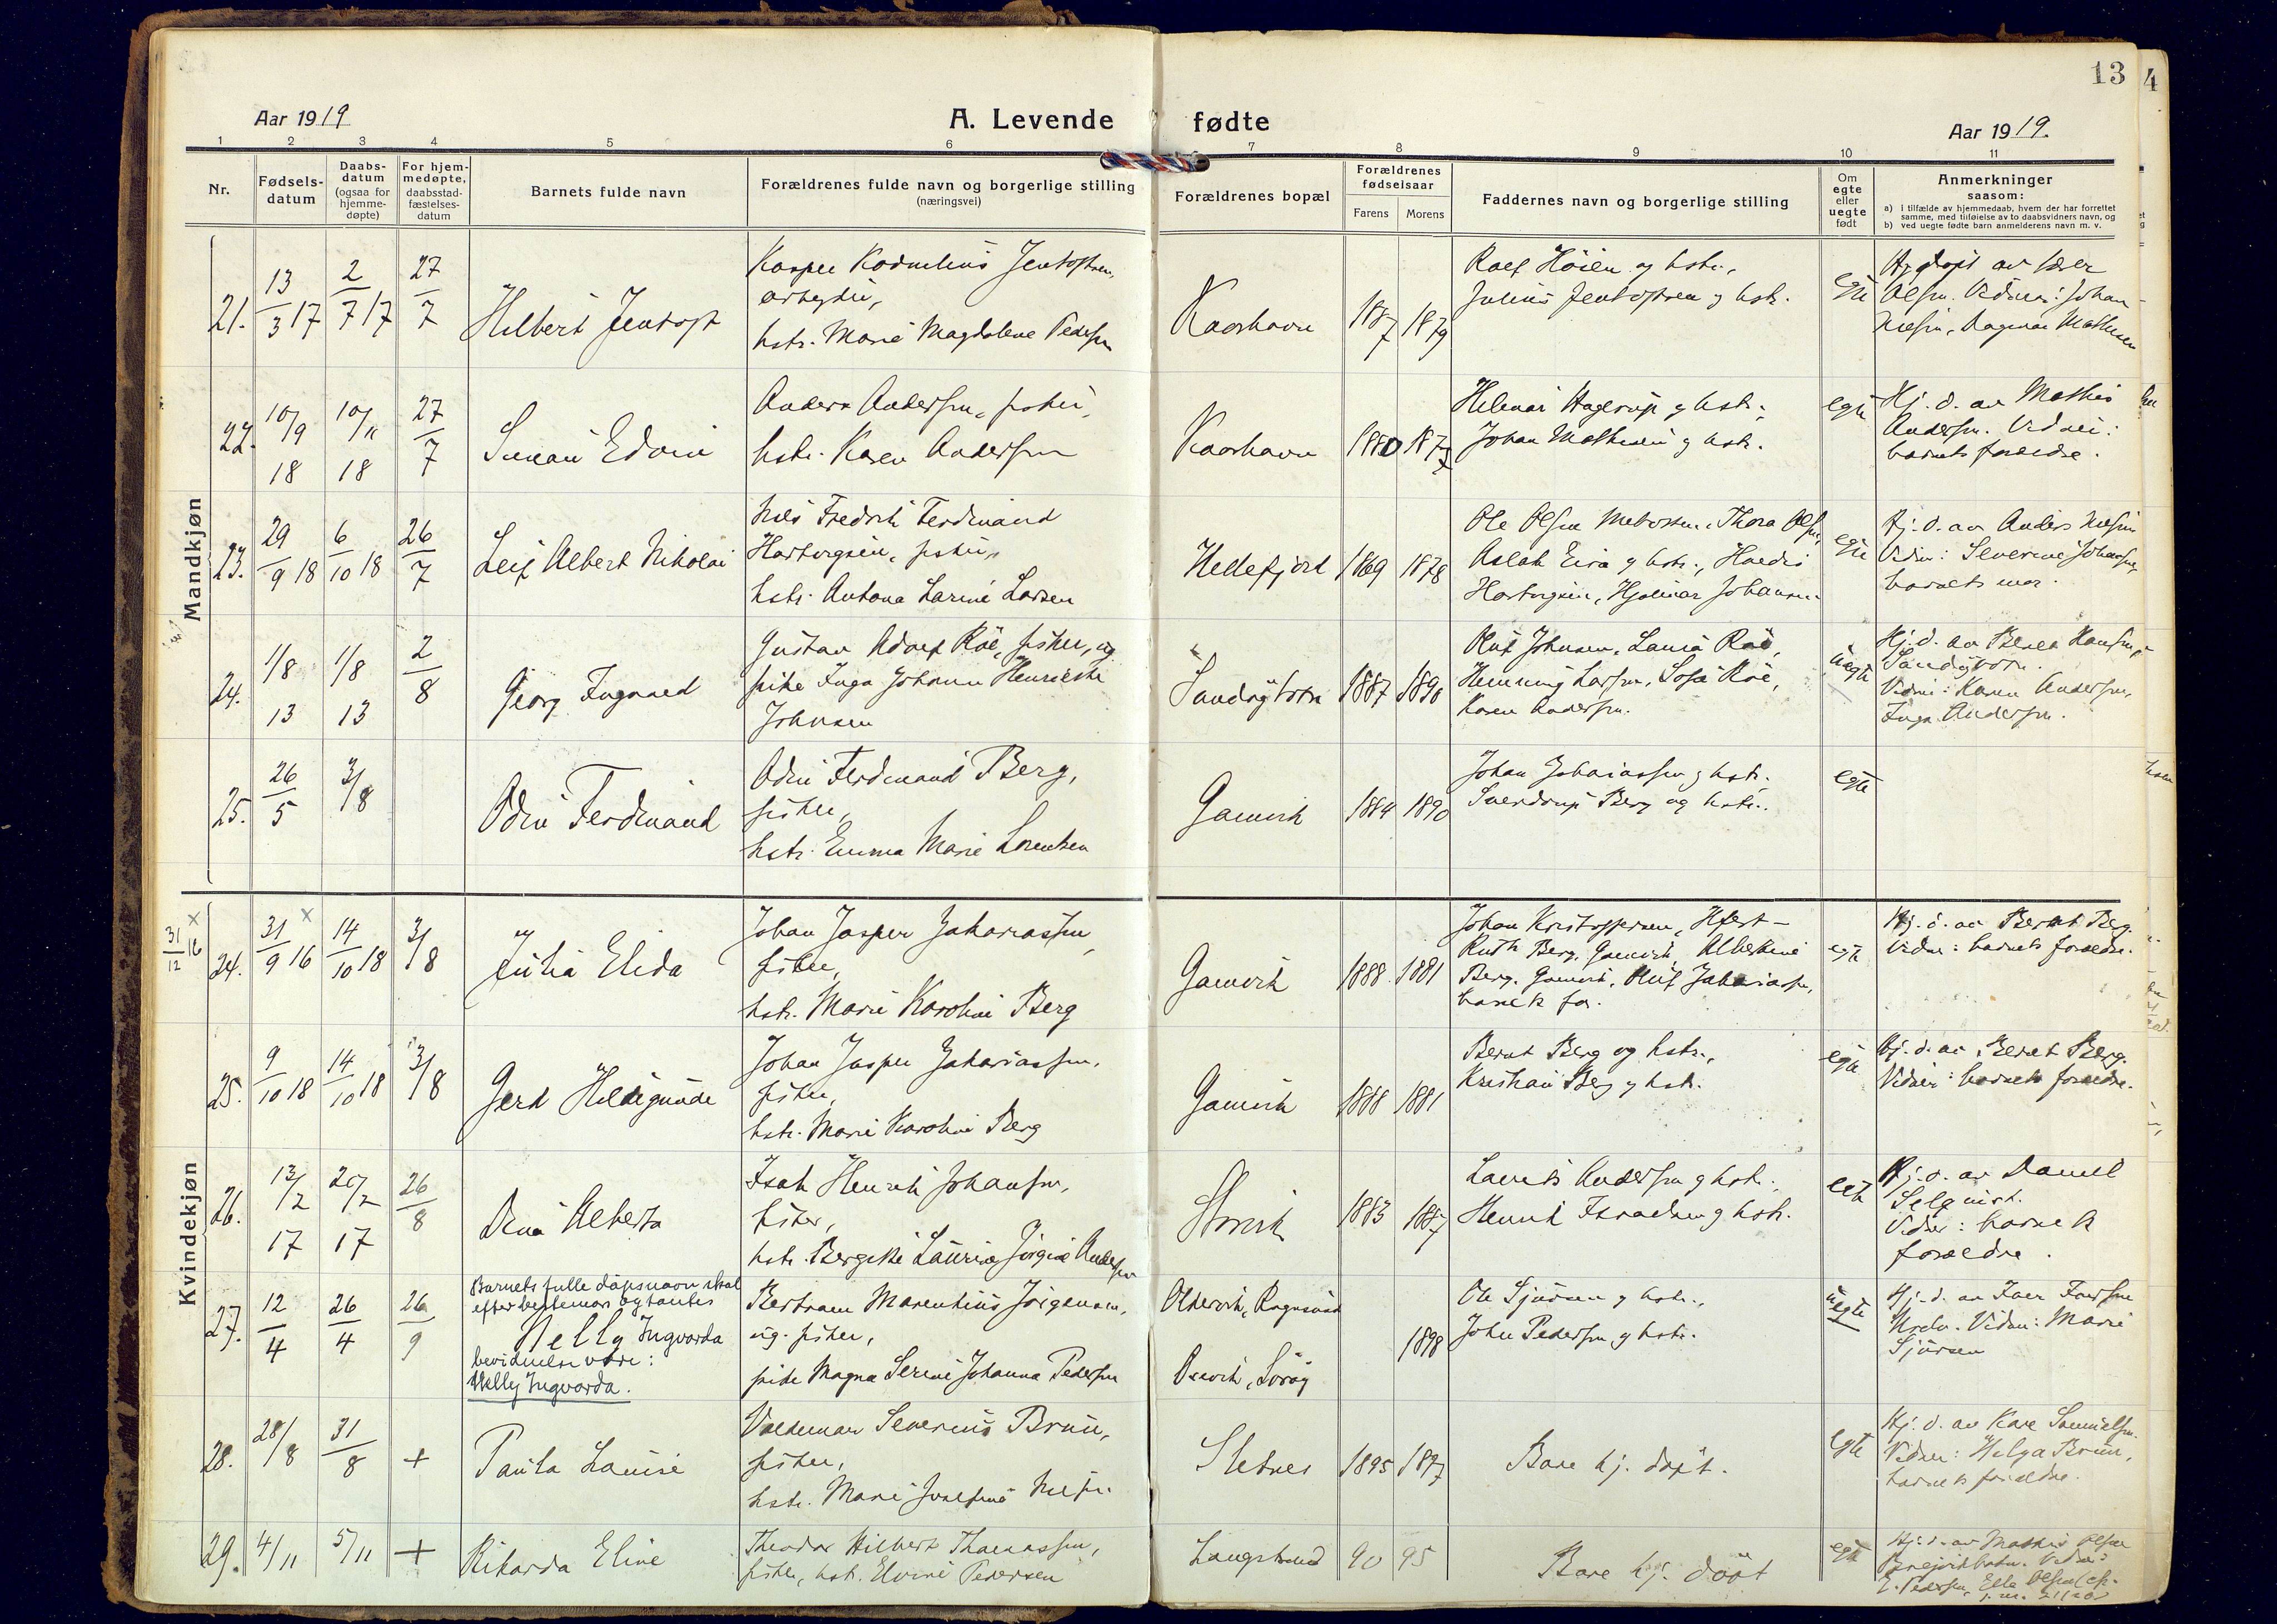 13
4
Aar 1919
A. Levende fødte
Aar 1919.
1 2 3 4 5 6 7 8 9 10 11
Nr.
Fødsels-
datum
Daabs-
datum
(ogsaa for
hjemme-
døpte)
For hjem-
medøpte,
daabsstad-
fæstelses-
datum
Barnets fulde navn
Forældrenes fulde navn og borgerlige stilling
(næringsvei)
Forældrenes bopæl
Forældrenes
fødselsaar
Farens Morens
Faddernes navn og borgerlige stilling
Om
egte
eller
uegte
født
Anmerkninger
saasom:
a) i tilfælde av hjemmedaab, hvem der har forrettet
samme, med tilføielse av to daabsvidners navn, og
b) ved uegte fødte barn anmelderens navn m. v.
Mandkjøn
21.
13/3 17
2/7 17
27/7
Hilbert Jentoft
Kasper Kornelius Jentoftsen,
arbeyder,
hstr. Marie Magdalene Pedersen
Kaarhavn
1887 1879
Rolf Høien og hstr.,
Julius Jentoftsen og hstr.
Olsen. Vidner: Johan
22.
10/9 18
10/11 18
27/7
Edvin
Anders Andersen, fisker,
hstr. Karen Andersen
Kaarhavn
1880 1877
Hilmar Hagerup og hstr.,
Johan Mathisen og hstr.
egte
Hj. d. av Mathis
Andersen. Vidner:
barnets forældre.
23.
29/9 18
6/10 18
26/7
Leif Albert Nikolai
Nils Fredrik Ferdinand
fisker,
hstr. Antona Larine Larsen
Hellefjord
1869 1878
Ole Olsen Thora Olsen,
Aslak Eira og hstr.,
Hjalmar Johansen.
Hj. d. av Anders Nilsen
Vidn: Severine Johansen,
barnets mor.
24.
1/8 13
1/8 13
2/8
Georg Ingvard
Gustav Adolf Röe, fisker, og
pike Inga Johanne
Johnsen
Sandøybotn
1887 1890
Oluf Johnsen, Laura Røe,
Henning Larsen, Sofie Röe,
Karen Andersen.
uegte
Hj. d. av Hansen,
Sandøybotn.
Vidner: Karen Andersen,
Inga Andersen.
25.
26/5
3/8
Odin Ferdinand
Odin Ferdinand Berg,
fisker,
hstr. Emma Marie Lorentsen
Gamvik
1884 1890
Johan Zakariassen og hstr.
Sverdrup Berg og hstr.
egte
Kvindekjøn
31/12 16 x
24.
31/9 16 x
14/10 18
3/8
Julia Elida
Johan Jasper Zakariassen,
fisker,
hstr. Marie Karoline Berg
Gamvik
1888. 1881
Johan Kristoffersen, Hfest-
Ruth Berg, Gamvik, Albertine
Berg, Gamvik, Oluf Zakariassen,
barnets far.
egte
Hj. d. av Bernt Berg.
Vidn: barnets forældre.
25.
9/10 18
14/10 18
3/8
Gerd Hildegunde
Johan Jasper Zakariassen,
fisker,
hstr. Marie Karoline Berg
Gamvik
1888 1881
Bernt Berg og hstr.,
Kristian Berg og hstr.
egte
Hj. d. av Bernt Berg.
Vidner: barnets forældre.
26.
13/2 17
20/2 17
26/8
Dina Alberta
Isak Henrik Johansen,
fisker,
hstr. Laurine Jørgine Andersen
1883 1887
Laurits Andersen og hstr.,
Henrik og hstr.
Hj. d. av Daniel
Selqvist.
Vidner: barnets
forældre.
27.
12/4
26/4
26/9
Barnets fulle dåpsnavn skal
efter bestemors og tantes
Nelly Ingvarda
bevidnelse være:
Nelly Ingvarda.
Bertram Marentius Jørgensen,
ug. fisker,
pike Magna Serine Johanna Pedersen
Oldervik,
Sörøy
1898
Ole Sjursen og hstr.,
John Pedersen og hstr.
uegte
Vidner: Marie
Sjursen
28.
28/8
31/8
+
Paula Louise
Valdemar Severins Bruun,
fisker,
hstr. Marie Josefine Nilsen
Sletnes
1895 1897
Bare hj. døpt.
egte
Hj. d. av Kare Samuelsen.
Vidner: Helga Bruun,
barnets forældre.
29.
4/11
5/11
+
Rikarda Eline
Theodor Hilbert Thomassen,
fisker, hst. Elvine Pedersen
Langstrand
90 95
Bare hj. döbt
egte
Hj. d. av Mathis Olsen
Vidner:
E. Pedersen, Ella Olsen